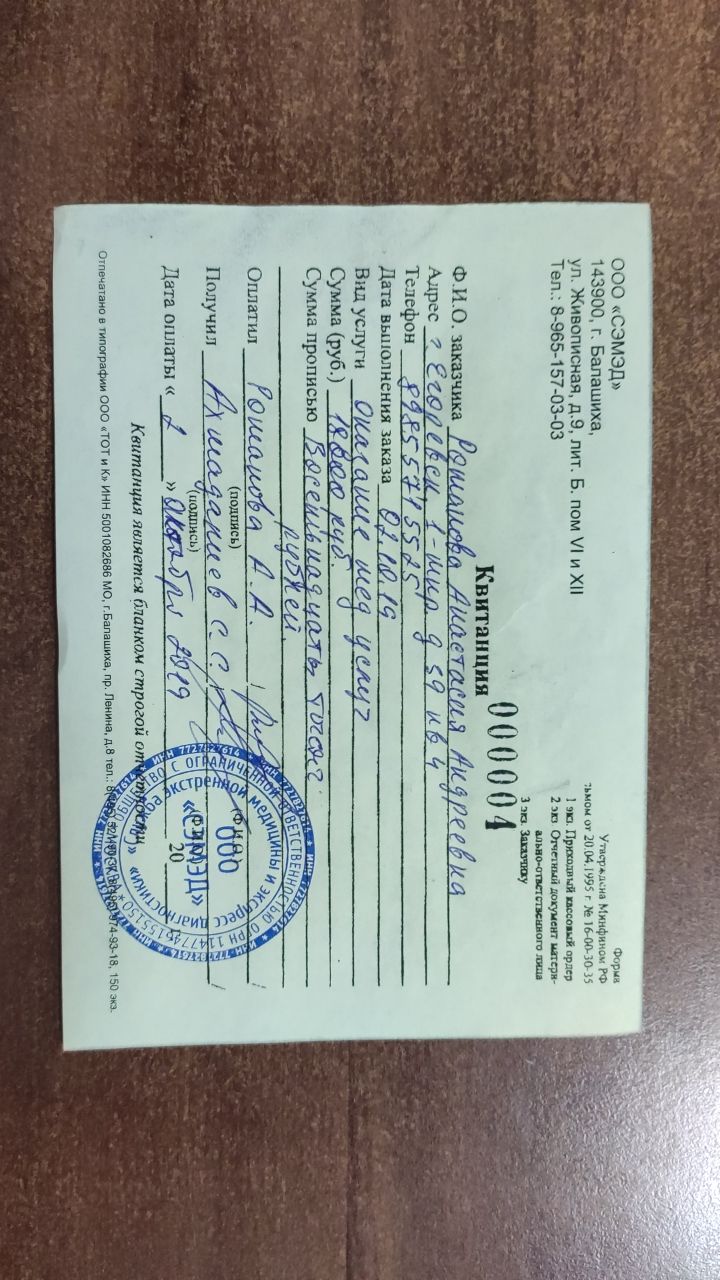 ООО «СЭМЭД»
143900, г. Балашиха,
ул. Живописная, д.9, лит. Б. пом VI и XII
Тел.: 8-965-157-03-03
Форма
Утверждена Минфином РФ
сьмом от 20.04.1995 г № 16-00-30-35
1 экз. Приходный кассовый ордер
2 экз. Отчетный документ матери-
ально-ответственного лица
3 экз. Заказчику
Квитанция 000004
Ф.И.О. заказчика Романова Анастасия Андреевна
Адрес г Егоревск 1-мкр д 59 кв 4
Телефон 89855745525
Дата выполнения заказа 07.10.19
Вид услуги Оказание мед услуг
Сумма (руб.) 18000 руб.
Сумма прописью Восемьнадцать тысяч
рублей.
Оплатил Романова А.А. /
(подпись) (Ф.И.О.)
Получил Ахмадариев С.С. /
(подпись) (Ф.И.О.)
Дата оплаты « 7 » Октября 2019 20
Квитанция является бланком строгой отчетности
Отпечатано в типографии ООО «ТОТ и К» ИНН 5001082686 МО, г.Балашиха, пр. Ленина, д.8 тел.: 974-93-18, 150 экз.
ОБЩЕСТВО С ОГРАНИЧЕННОЙ ОТВЕТСТВЕННОСТЬЮ
ИНН 7727827614
экстренной медицины и экспресс диагностики»
ООО
«СЭМЭД»